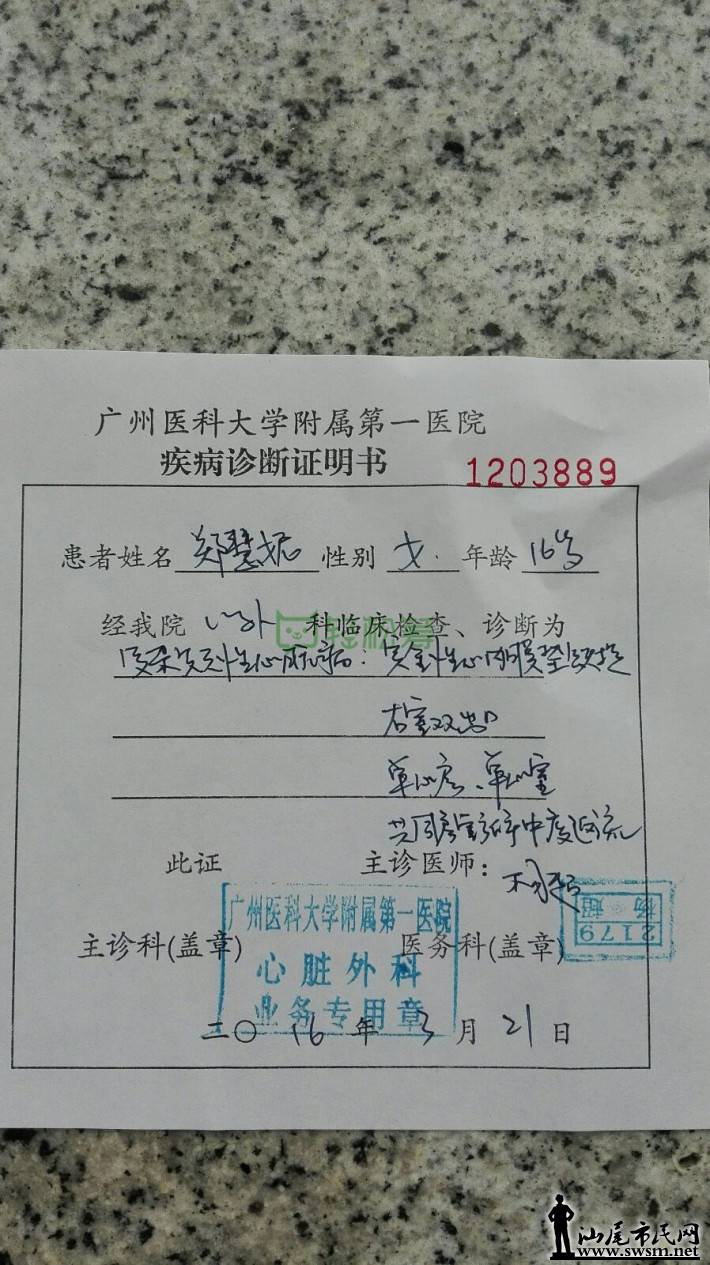 广州医科大学附属第一医院
疾病诊断证明书 1203889
患者姓名 郑慧妮 性别 女 年龄 16岁
经我院 心外 科临床检查、诊断为
轻松筹
复杂先天性心脏病. 完全性心内膜垫缺损
右室双出口
单心房、单心室
共同房室瓣中度返流
此证 主诊医师: 杨超
广州医科大学附属第一医院
心脏外科
业务专用章
主诊科(盖章) 医务科(盖章)
杨超
2179
二〇16年3月21日
汕尾市民网
www.swsm.net